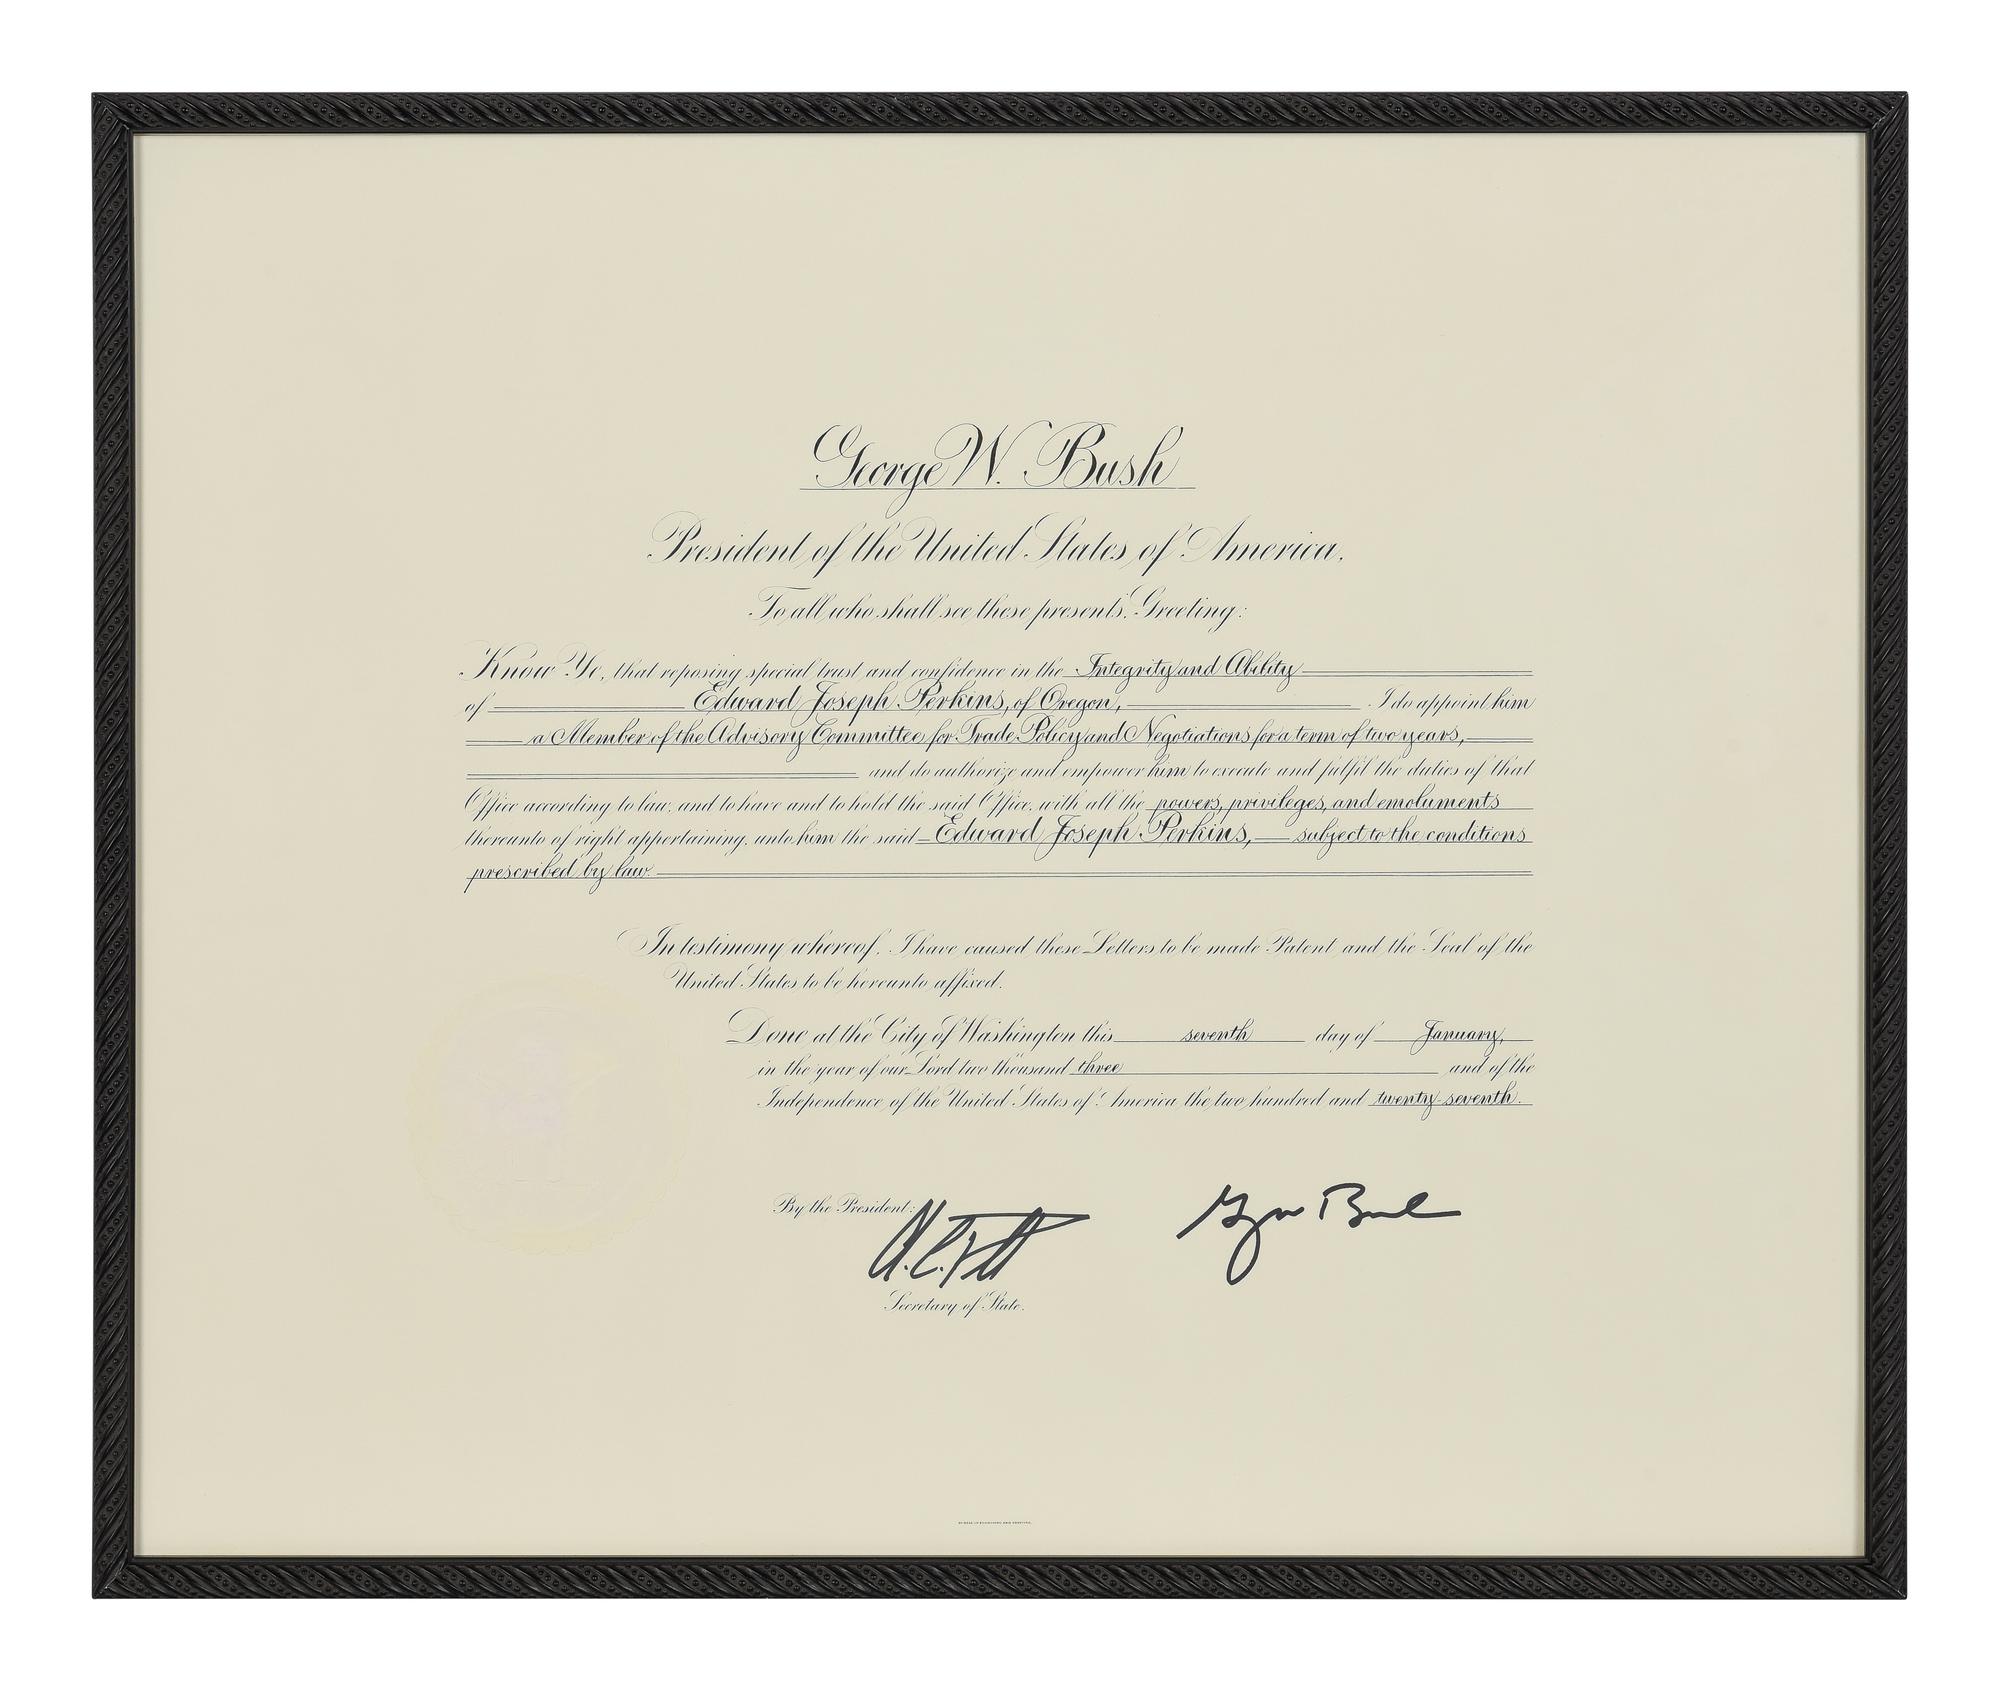 George W. Bush
President of the United States of America.
To all who shall see these presents, Greeting:
Know Ye, that reposing special trust and confidence in the Integrity and Ability
of Edward Joseph Perkins, of Oregon, I do appoint him
a Member of the Advisory Committee for Trade Policy and Negotiations for a term of two years,
and do authorize and empower him to execute and fulfil the duties of that
Office according to law, and to have and to hold the said Office, with all the powers, privileges, and emoluments
thereunto of right appertaining, unto him the said Edward Joseph Perkins, subject to the conditions
prescribed by law.
In testimony whereof, I have caused these Letters to be made Patent and the Seal of the
United States to be hereunto affixed.
Done at the City of Washington this seventh day of January,
in the year of our Lord two thousand three and of the
Independence of the United States of America the two hundred and twenty-seventh.
By the President:
Secretary of State.